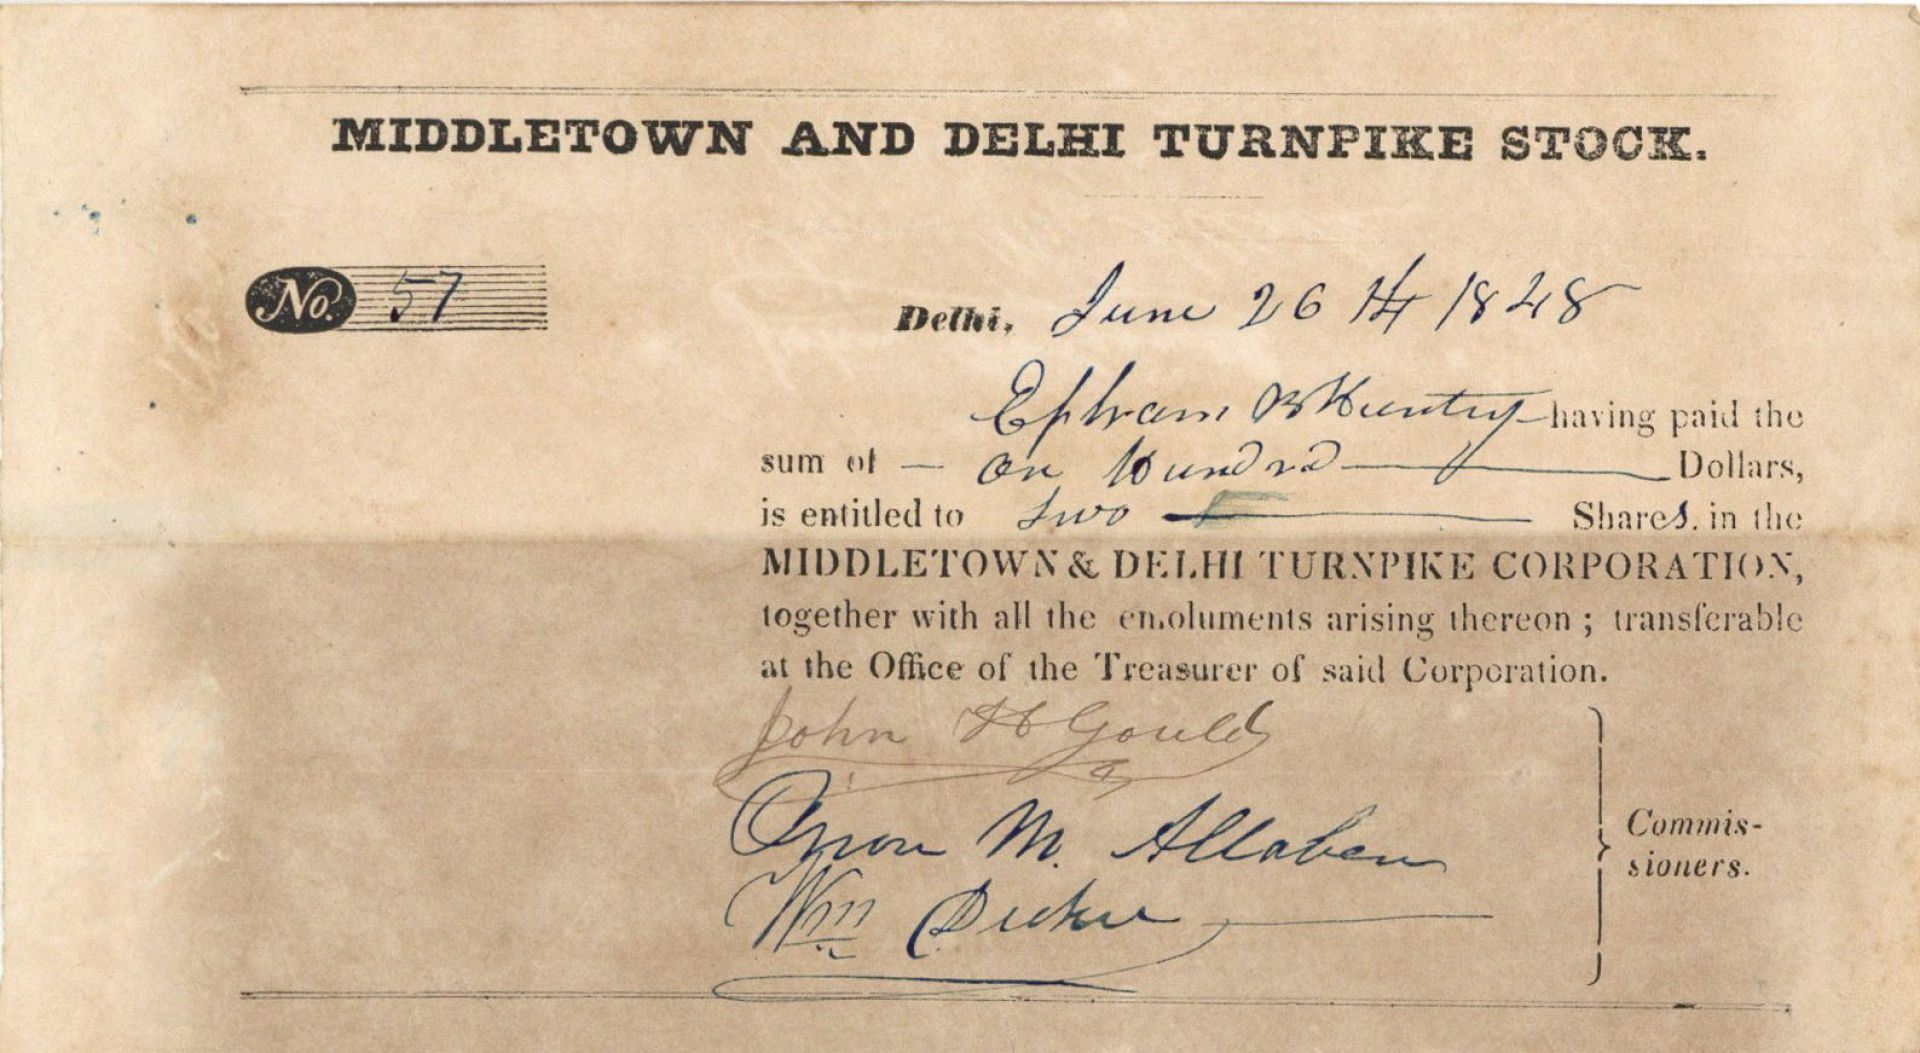 MIDDLETOWN AND DELHI TURNPIKE STOCK.
No. 57
Delhi, June 26th 1848
Ephram B Huntly having paid the
sum of — on hundrd — Dollars,
is entitled to two — Shares. in the
MIDDLETOWN & DELHI TURNPIKE CORPORATION,
together with all the emoluments arising thereon; transferable
at the Office of the Treasurer of said Corporation.
John H Gould
Orson M. Allaben
Wm
Commis-
sioners.